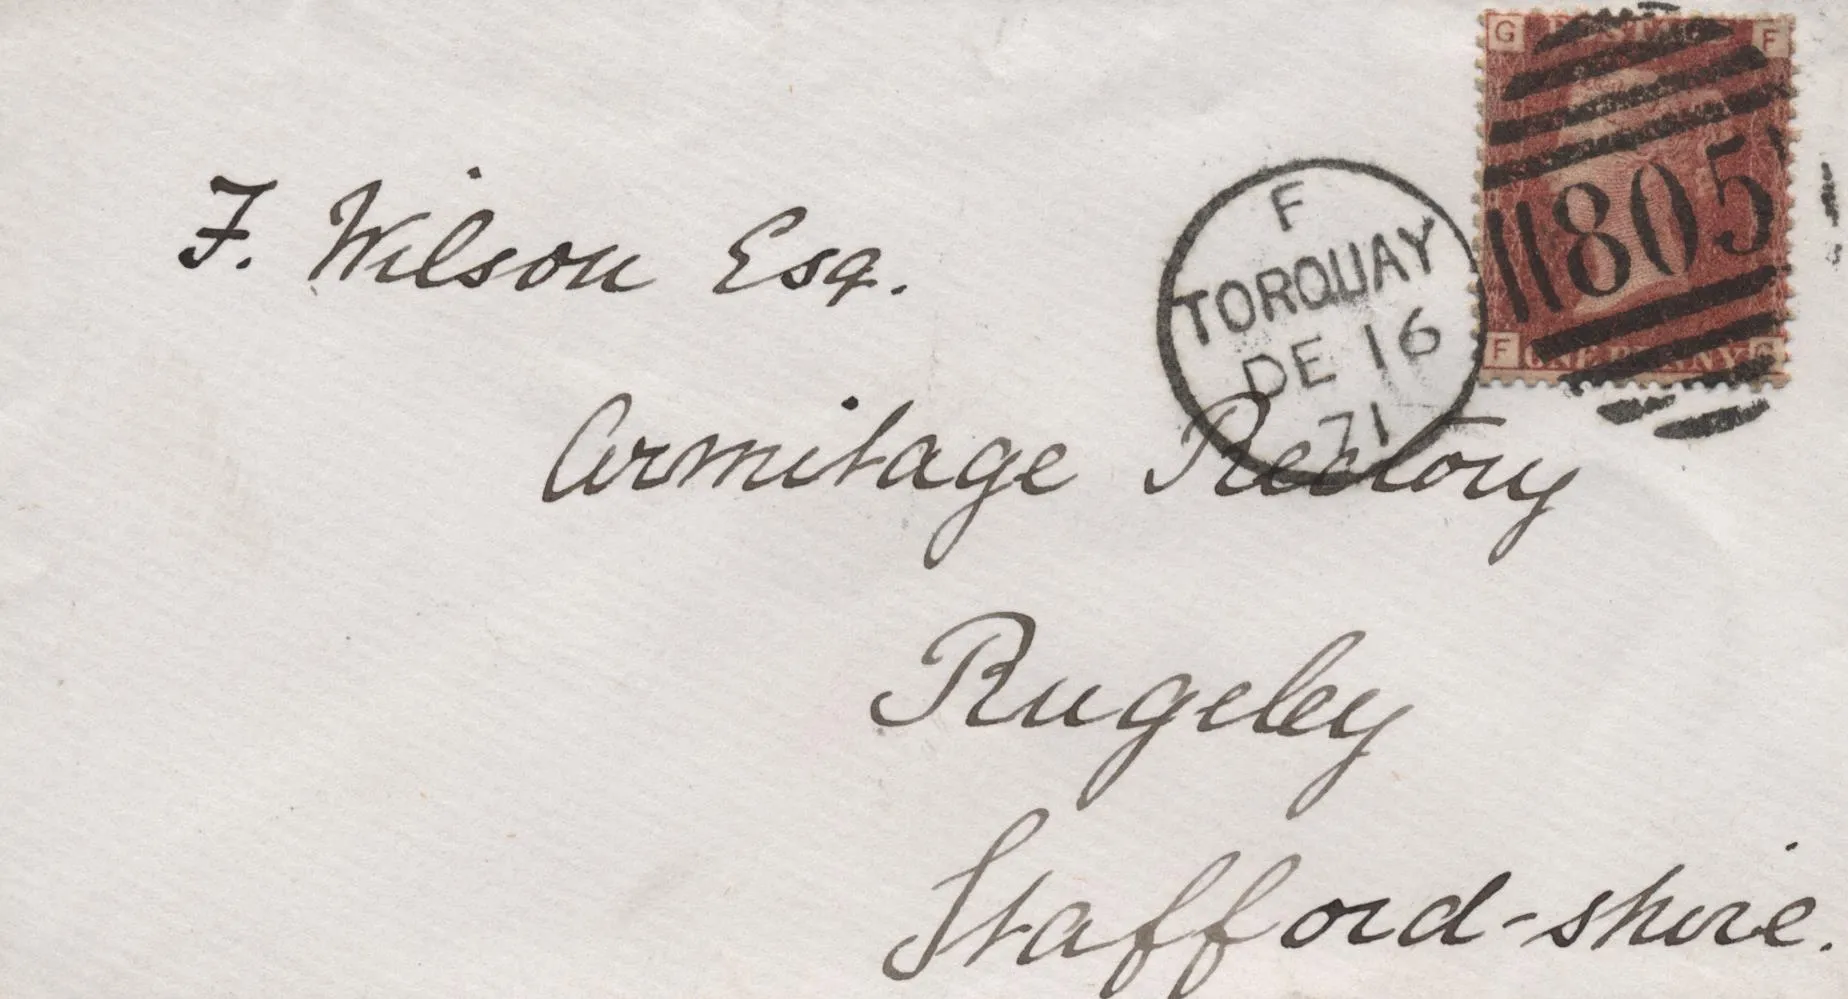 G POSTAGE F
805
F ONE PENNY G
F
TORQUAY
DE 16
71
F. Wilson Esq.
Armitage Rectory
Rugeley
Stafford-shire.